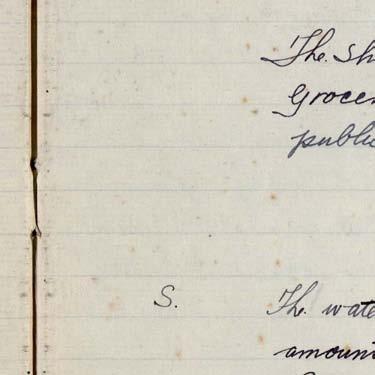 The Sh
Grocer
public
S. The wate
amount